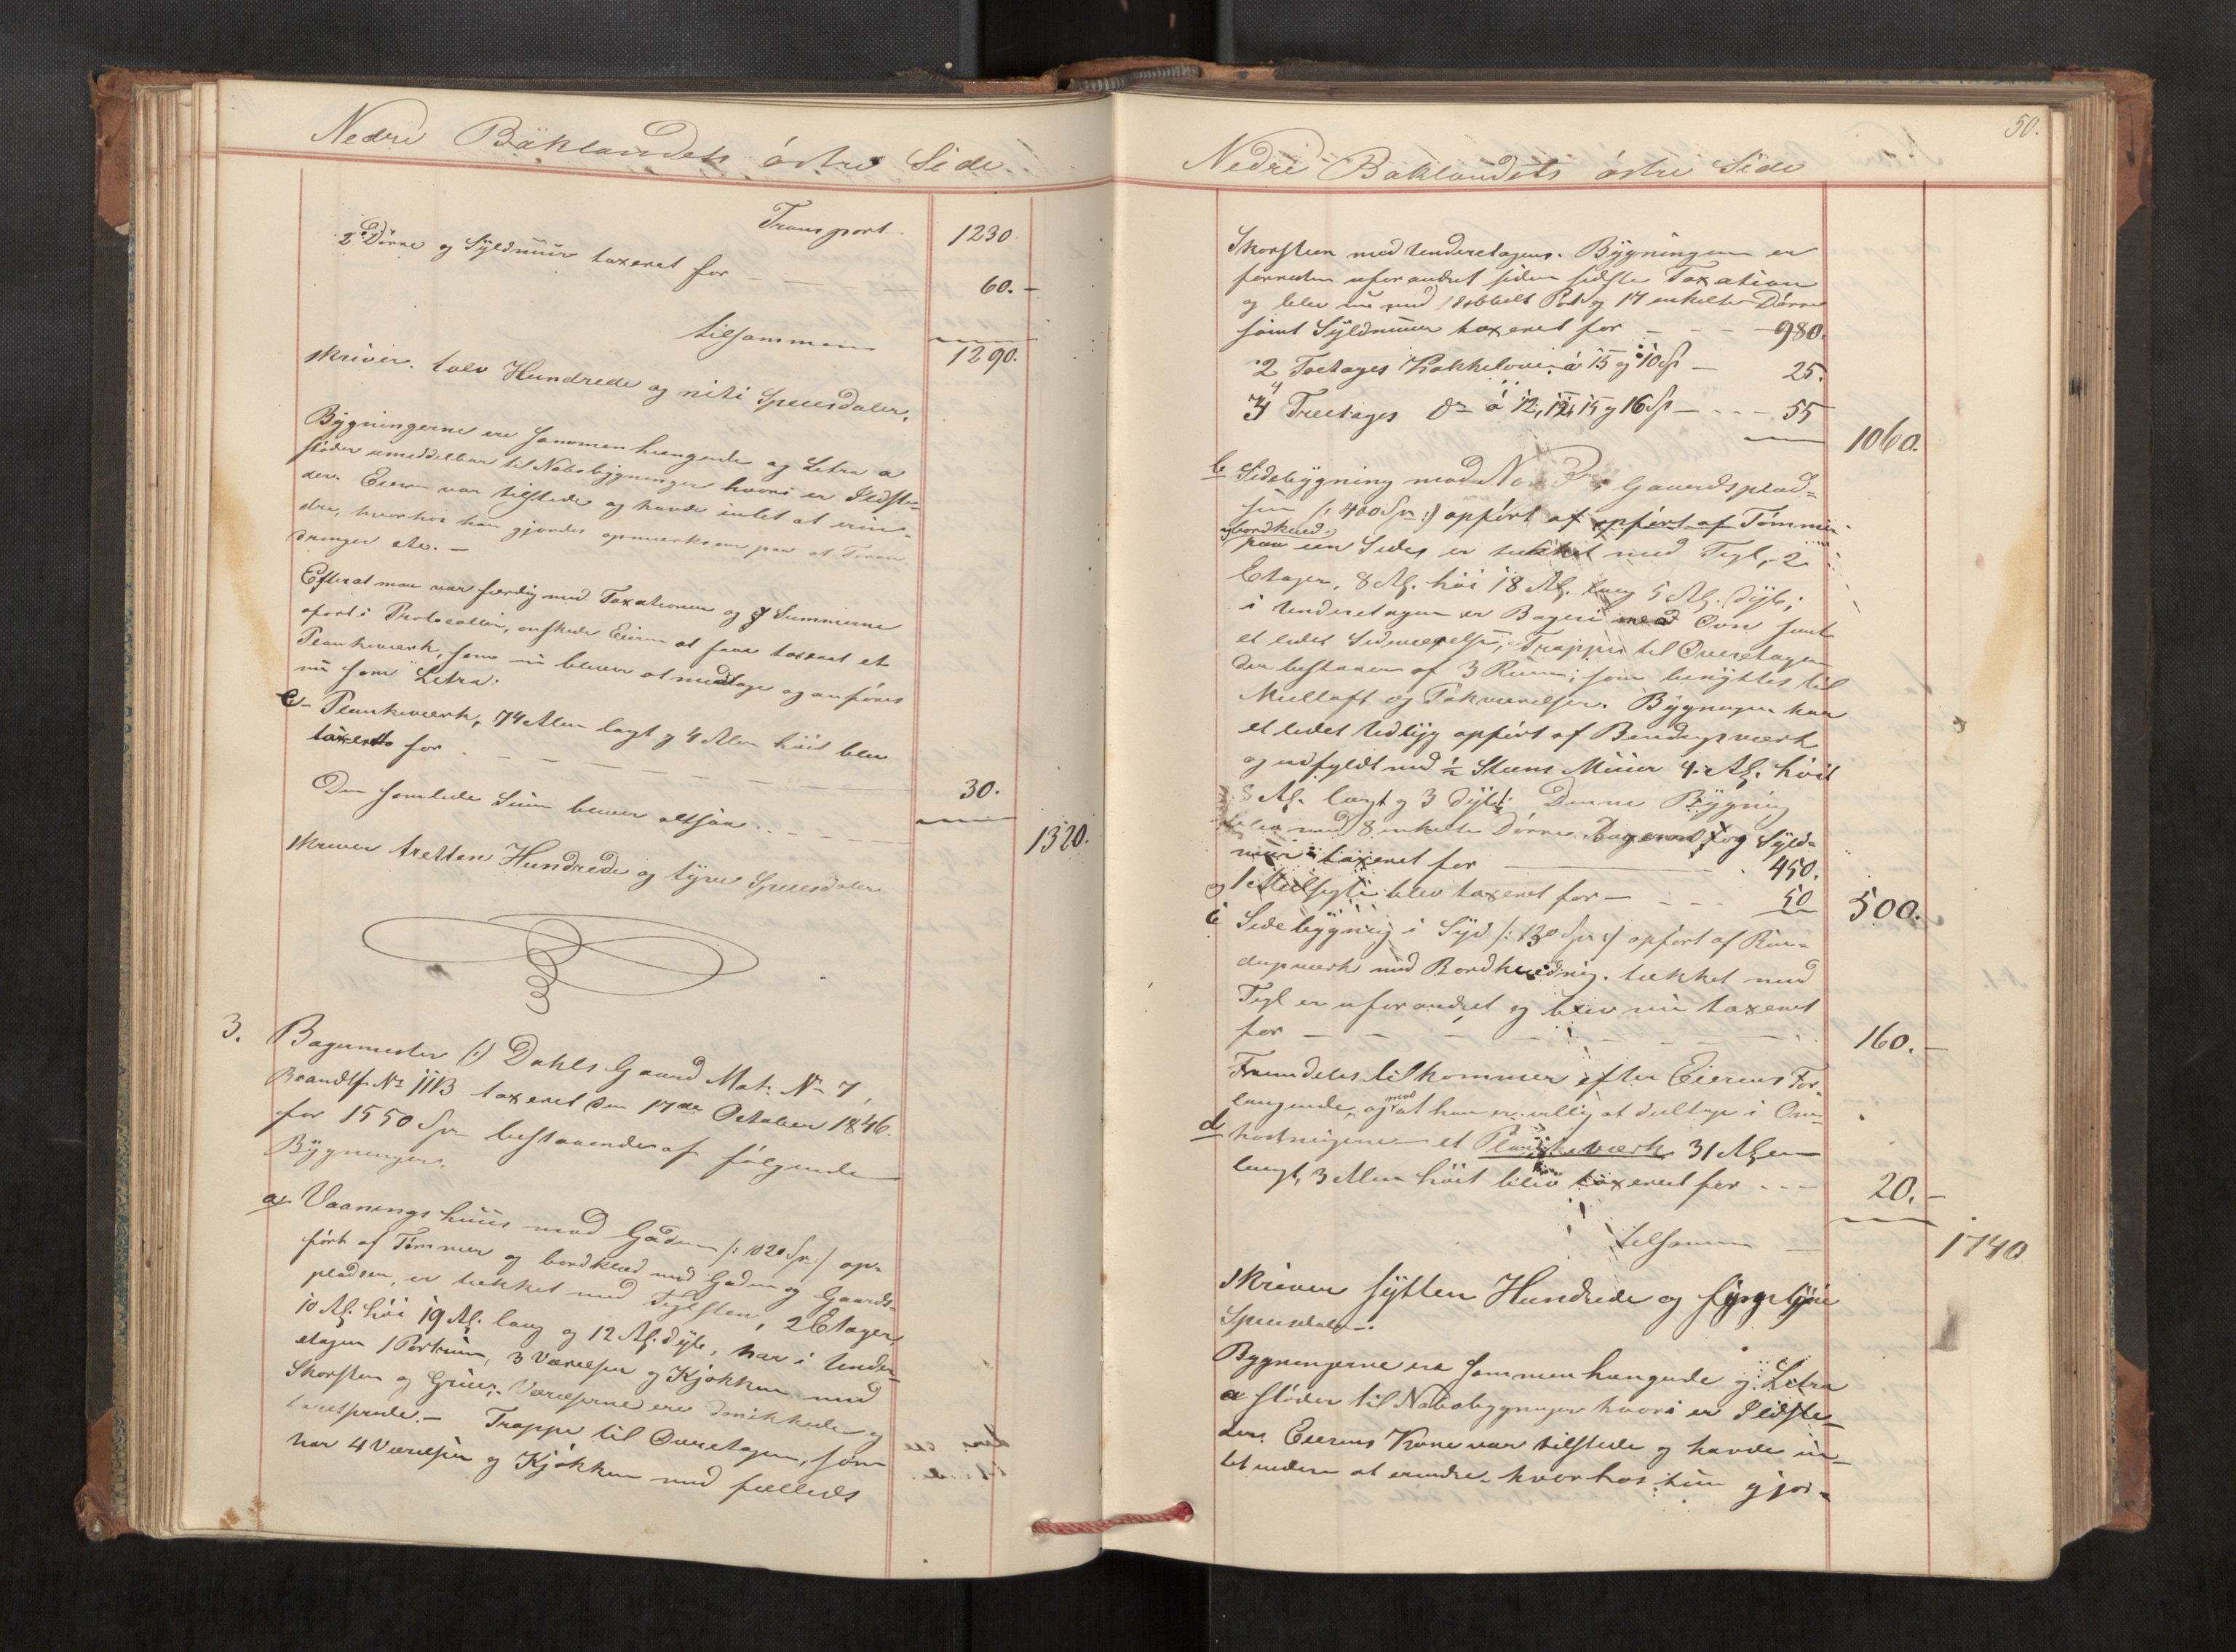 Nedre Baklandets östre Side
Transport 1230
2 Dörre og Syldmuur taxeret for — 60.-
tilsammen 1290.
skriver tolv Hundrede og niti Speciesdaler.
Bygningerne ere sammenhængende og Litra a
støder umiddelbar til Nabobygninger hvori er Ildste-
der. Eieren var tilstede og havde intet at erin-
dre, hvorhos han gjordes opmærksom paa at Foran-
dringer etc. —
Efterat man var færdig med Taxationen og Summerne
opført i Protocollen, ønskede Eieren at faae taxeret et
Plankeværk, som nu bliver at medtage og anføres
nu som Litra.
e- Plankeværk, 74 Alen langt og 4 Alen høit blev
taxeret for — 30.
Den samlede Sum bliver altsaa — 1320.
skriver tretten Hundrede og tyve Speciesdaler.
3. Bagermester Dahls Gaard Mat. No 7,
Brandtf. No 11B taxeret den 17de October 1846.
for 1550 Spd bestaaende af følgende
Bygninger.
a Vaaningshuus mod Gaden /: 1020 Spd :/ op-
ført af Tømmer og bordklæd mod Gaden og Gaards-
pladsen, er tækket med Teglsten, 2 Etager,
10 Al. høi 19 Al. lang og 12 Al. dyb, har i Under-
etagen 1 Portrum, 3 Værelser og Kjøkken med
Skorsten og Gruer. Værelserne ere panikkede og
betrukne.— Trappe til Overetagen, som
har 4 Værelser og Kjøkken med fælleds
50.
Nedre Baklandets östre Side
Skorsteen med Underetagens. Bygningen er
forresten uforandret siden sidste Taxation
og blev nu med 1 dobbelt Port og 17 enkelte Dörre
samt Syldmuur taxeret for — 980.
2 Toetages Kakkelovne á 15 og 10 Sp — 25.
4 Treetages do á 12, 12, 15 og 16 Sp — 55
1060.
b Sidebygning mod Nord i Gaardsplad-
sen /: 400 Spd :/ opført af opført af Tømmer
og bordklæd
paa een Side, er tækket med Tegl, 2
Etager, 8 Al. høi 18 Al. lang 5 Al. dyb;
i Underetagen er Bageri med Ovn samt
et lidet Sideværelse, Trappe til Overetagen
der bestaaer af 3 Rum, som benyttes til
Melloft og Tagværelser. Bygningen har
et lidet Udbyg opført af Bindingsværk
og udfyldt med ½ Steens Muur 4 Al. høit
8 Al. langt og 3 dybt. Denne Bygning
blev med 8 enkelte Dörre og Syld-
muur taxeret for — 450.
og 1 Melsigte blev taxeret for — 50
500.
c Sidebygning i Syd /: 130 Spd :/ opført af Bin-
dingsværk med Bordklædning. tækket med
Tegl er uforandret og blev nu taxeret
for — 160.-
Fremdeles tilkommer efter Eierens For-
langende, og mod at han er villig at deeltage i Om-
kostningerne
d et Plankeværk 31 Alen
langt, 3 Alen høit blev taxeret for — 20.-
tilsammen — 1740
skriver sytten Hundrede og fyrgetyve
Speciesdaler.
Bygningerne ere sammenhængende og Litra
a støder til Nabobygninger hvori er Ildste-
der. Eierens Kone var tilstede og havde in-
tet videre at erindre, hvorhos hun gjor-